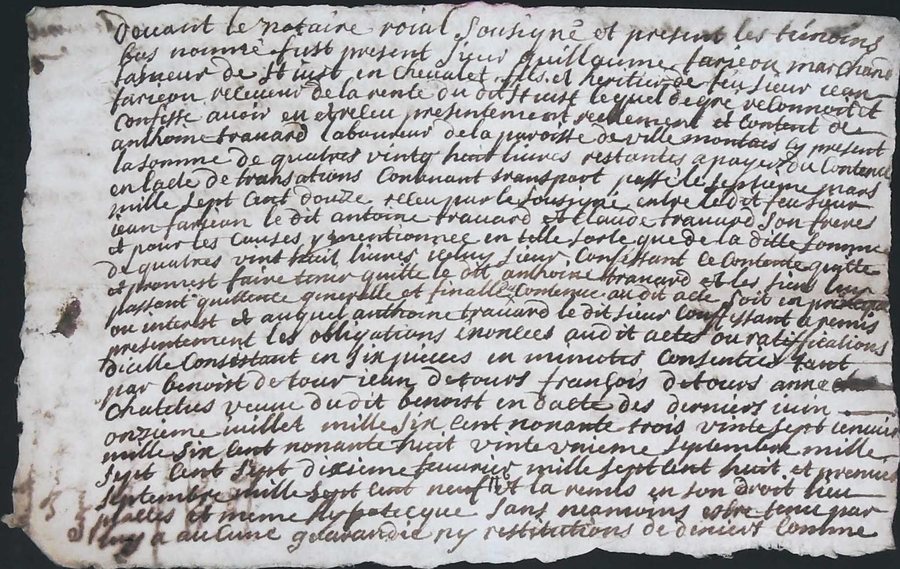 devant le notaire roial sousigné et present les témoins
bas nommé fust present sieur guillaume farjeon marchand
de st just en chevalet fils et heritier de feu sieur jean
farjeon receveur de la rente du dit st just lequel de gre reconnoit et
confesse avoir eu et receu presentement reellement et content de
anthoine travard laboureur de la paroisse de ville montais cy present
la somme de quatres vingt huit livres restantes a payer du contenu
en lacte de transations contenant transport passé le septieme mars
mille sept cent douze receu par le sousigné entre le dit feu sieur
jean farjean le dit antoine travard et claude travard son frere
et pour les causes y mentionnee en telle sorte que de la ditte somme
de quatres vint huit livres iceluy sieur confessant ce contente quitte
et promest faire tenir quitte le dit anthoine travard et les siens leur
passant quittence generelle et finalle contenue au dit acte soit en
ou interest et auquel anthoine travard le dit sieur confessant a remis
presentement les obligations enoncees audit actes ou ratiffications
dicelle consistant en six pieces en minutes consenties tant
par benoist detour jean detours françois detours anne
chaldus veuve du dit benoist en dacte des derniers juin
onzieme millet mille six cent nonante trois vinte sept jenvier
mille six cent nonante huit vinte unieme septembre mille
sept cent sept dixieme fevrier mille sept cent huit et premier
septembre mille sept cent neuf et la remis en son droit lieu
places et meme hypotecque sans neamoins estre tenu par
luy a aucune guarandie ny restitutions de deniers comme